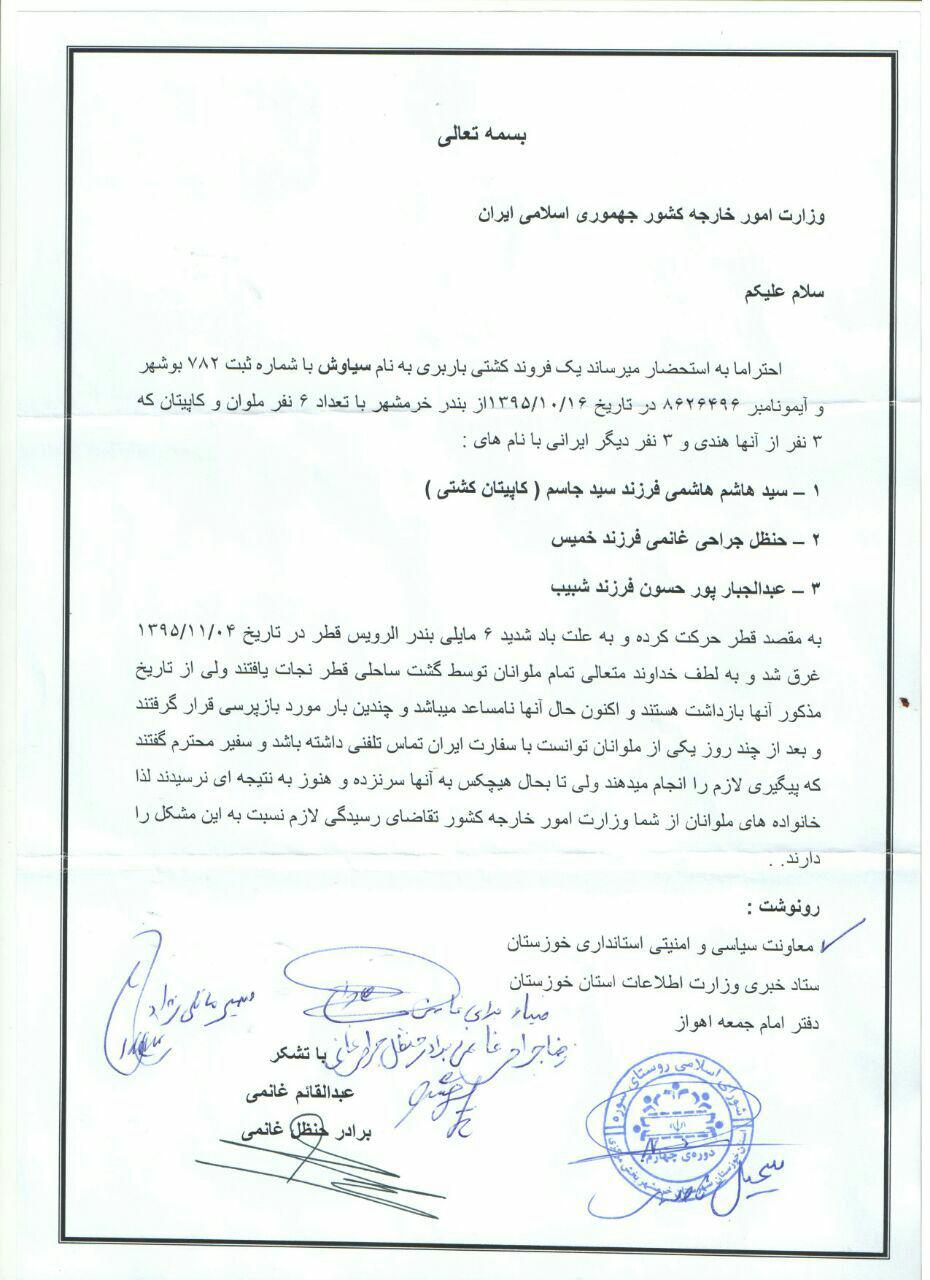 بسمه تعالی
وزارت امور خارجه کشور جهموری اسلامی ایران
سلام علیکم
احتراما به استحضار میرساند یک فروند کشتی باربری به نام سیاوش با شماره ثبت ۷۸۲ بوشهر
و آیمونامبر ۸۶۲۶۴۹۶ در تاریخ ۱۳۹۵/۱۰/۱۶از بندر خرمشهر با تعداد ۶ نفر ملوان و کاپیتان که
۳ نفر از آنها هندی و ۳ نفر دیگر ایرانی با نام های :
۱ – سید هاشم هاشمی فرزند سید جاسم ( کاپیتان کشتی )
۲ – حنظل جراحی غانمی فرزند خمیس
۳ – عبدالجبار پور حسون فرزند شبیب
به مقصد قطر حرکت کرده و به علت باد شدید ۶ مایلی بندر الرویس قطر در تاریخ ۱۳۹۵/۱۱/۰۴
غرق شد و به لطف خداوند متعالی تمام ملوانان توسط گشت ساحلی قطر نجات یافتند ولی از تاریخ
مذکور آنها بازداشت هستند و اکنون حال آنها نامساعد میباشد و چندین بار مورد بازپرسی قرار گرفتند
و بعد از چند روز یکی از ملوانان توانست با سفارت ایران تماس تلفنی داشته باشد و سفیر محترم گفتند
که پیگیری لازم را انجام میدهند ولی تا بحال هیچکس به آنها سرنزده و هنوز به نتیجه ای نرسیدند لذا
خانواده های ملوانان از شما وزارت امور خارجه کشور تقاضای رسیدگی لازم نسبت به این مشکل را
دارند. .
رونوشت :
معاونت سیاسی و امنیتی استانداری خوزستان
ستاد خبری وزارت اطلاعات استان خوزستان
دفتر امام جمعه اهواز
با تشکر
عبدالقائم غانمی
برادر حنظل غانمی
شورای اسلامی روستای سوره
دوره‌ی چهارم